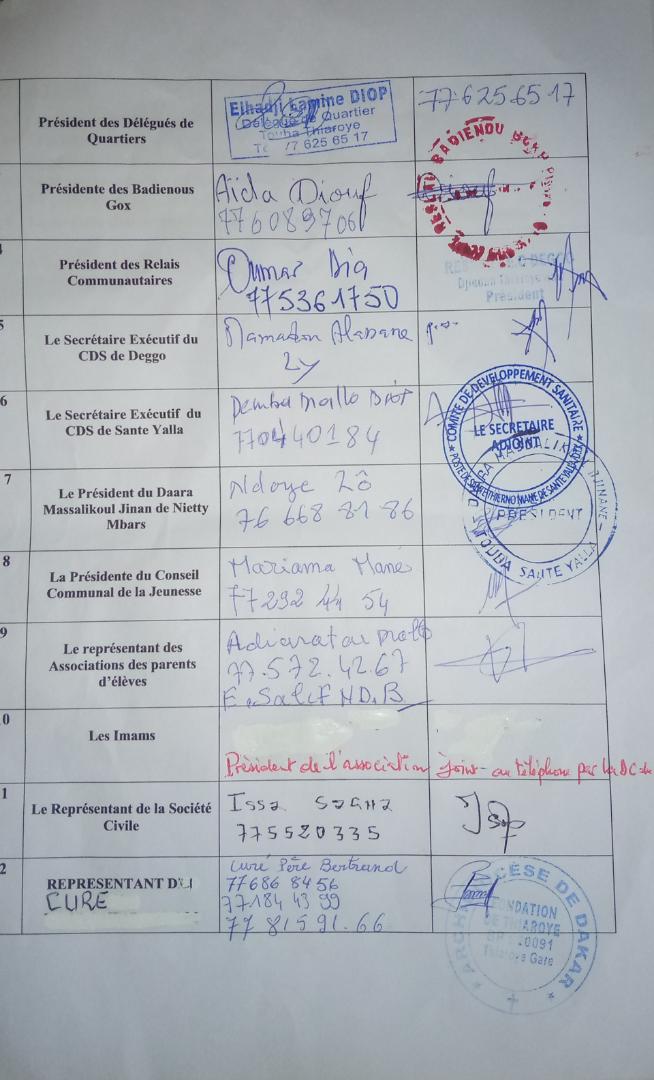 Président des Délégués de
Quartiers
Elhadji Lamine DIOP
Délégué de Quartier
Touba Thiaroye
77 625 65 17
77 625 65 17
Présidente des Badienous
Gox
Aïda Diouf
776089706
BADIENOU
Président des Relais
Communautaires
Oumar Dia
775361750
DEGGO
Président
5
Le Secrétaire Exécutif du
CDS de Deggo
Mamadou Alassane
Ly
6
Le Secrétaire Exécutif du
CDS de Sante Yalla
Demba Diallo Diop
770440184
COMITE DE DEVELOPPEMENT SANITAIRE
LE SECRETAIRE
ADJOINT
7
Le Président du Daara
Massalikoul Jinan de Nietty
Mbars
Ndoye Lô
76 668 81 86
PRESIDENT
TOUBA SANTE YALLA
8
La Présidente du Conseil
Communal de la Jeunesse
Mariama Mané
77292 44 54
9
Le représentant des
Associations des parents
d’élèves
77.572.42.67
E.Salif ND.B
0
Les Imams
Président de l'association joint au téléphone par
1
Le Représentant de la Société
Civile
Issa
775520335
2
REPRESENTANT DU
CURE
Curé Père Bertrand
77686 8456
77184 43 99
77 815 91.66
DIOCESE DE DAKAR
DE THIAROYE
Thiaroye Gare